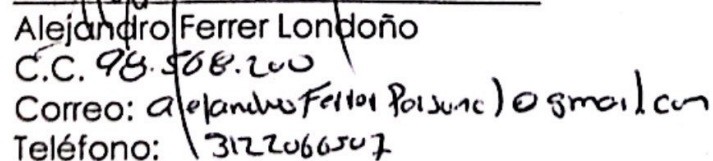 Alejandro Ferrer Londoño
C.C. 98.568.200
Correo: alejandroFerrerPersonal@gmail.com
Teléfono: 3122066507